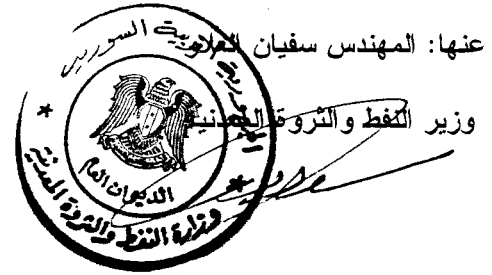 عنها: المهندس سفيان العلاو
وزير النفط والثروة المعدنية
الجمهورية العربية السورية
الديوان العام
وزارة النفط والثروة المعدنية